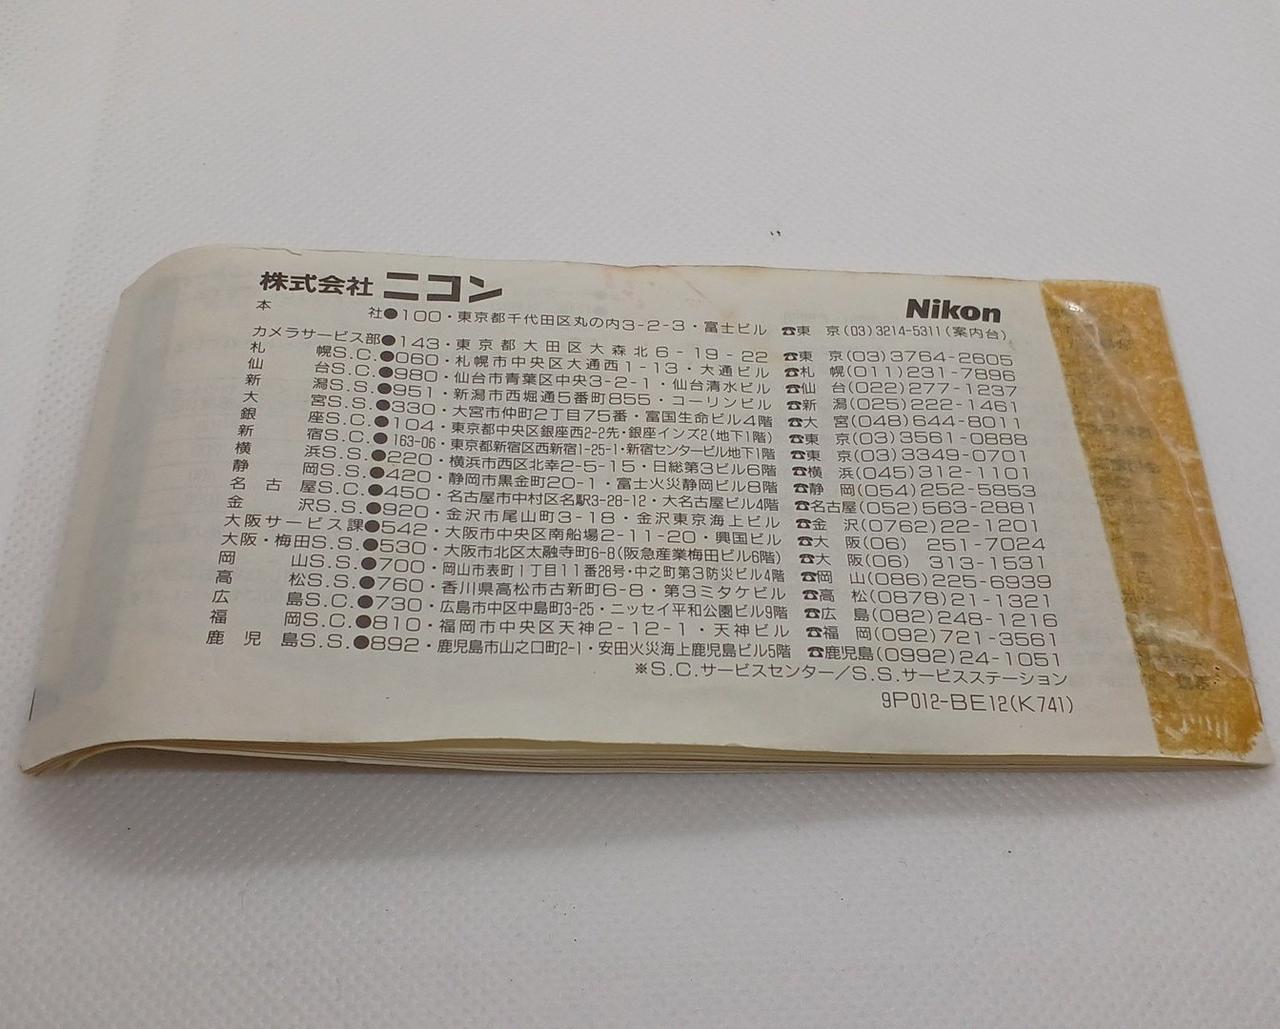 株式会社 ニコン
Nikon
本社●100・東京都千代田区丸の内3-2-3・富士ビル ☎東京(03)3214-5311(案内台)
カメラサービス部●143・東京都大田区大森北6-19-22 ☎東京(03)3764-2605
札幌S.C.●060・札幌市中央区大通西1-13・大通ビル ☎札幌(011)231-7896
仙台S.C.●980・仙台市青葉区中央3-2-1・仙台清水ビル ☎仙台(022)277-1237
新潟S.S.●951・新潟市西堀通5番町855・コーリンビル ☎新潟(025)222-1461
大宮S.S.●330・大宮市仲町2丁目75番・富国生命ビル4階 ☎大宮(048)644-8011
銀座S.C.●104・東京都中央区銀座西2-2先・銀座インズ2(地下1階) ☎東京(03)3561-0888
新宿S.C.●163-06・東京都新宿区西新宿1-25-1・新宿センタービル地下1階 ☎東京(03)3349-0701
横浜S.S.●220・横浜市西区北幸2-5-15・日総第3ビル6階 ☎横浜(045)312-1101
静岡S.S.●420・静岡市黒金町20-1・富士火災静岡ビル8階 ☎静岡(054)252-5853
名古屋S.C.●450・名古屋市中村区名駅3-28-12・大名古屋ビル4階 ☎名古屋(052)563-2881
金沢S.S.●920・金沢市尾山町3-18・金沢東京海上ビル ☎金沢(0762)22-1201
大阪サービス課●542・大阪市中央区南船場2-11-20・興国ビル ☎大阪(06) 251-7024
大阪・梅田S.S.●530・大阪市北区太融寺町6-8(阪急産業梅田ビル6階) ☎大阪(06) 313-1531
岡山S.S.●700・岡山市表町1丁目11番28号・中之町第3防災ビル4階 ☎岡山(086)225-6939
高松S.S.●760・香川県高松市古新町6-8・第3ミタケビル ☎高松(0878)21-1321
広島S.C.●730・広島市中区中島町3-25・ニッセイ平和公園ビル9階 ☎広島(082)248-1216
福岡S.C.●810・福岡市中央区天神2-12-1・天神ビル ☎福岡(092)721-3561
鹿児島S.S.●892・鹿児島市山之口町2-1・安田火災海上鹿児島ビル5階 ☎鹿児島(0992)24-1051
※S.C.サービスセンター/S.S.サービスステーション
9P012-BE12(K741)